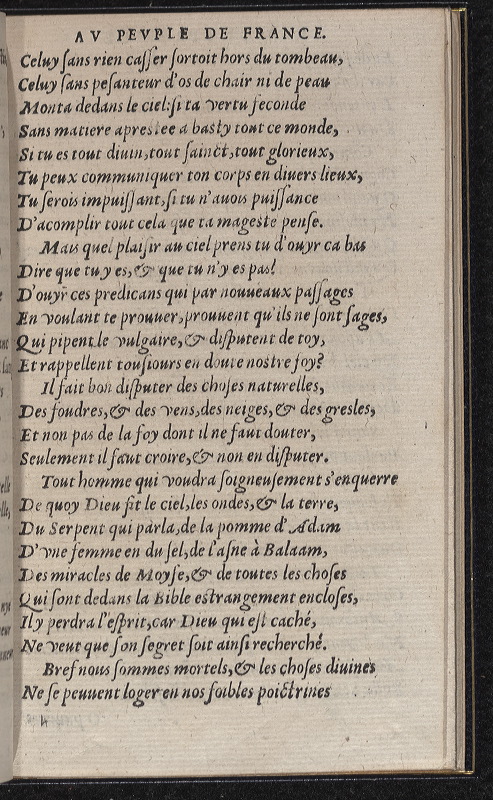 AV PEVPLE DE FRANCE.
Celuy ſans rien caſſer ſortoit hors du tombeau,
Celuy ſans peſanteur d'os de chair ni de peau
Monta dedans le ciel: ſi ta vertu feconde
Sans matiere apreſtee a baſty tout ce monde,
Si tu es tout diuin, tout ſainct, tout glorieux,
Tu peux communiquer ton corps en diuers lieux,
Tu ſerois impuiſſant, ſi tu n'auois puiſſance
D'acomplir tout cela que ta mageſte penſe.
Mais quel plaiſir au ciel prens tu d'ouyr ca bas
Dire que tu y es, & que tu n'y es pas!
D'ouyr ces predicans qui par nouueaux paſſages
En voulant te prouuer, prouuent qu'ils ne ſont ſages,
Qui pipent le vulgaire, & diſputent de toy,
Et rappellent touſiours en doute noſtre foy?
Il fait bon diſputer des choſes naturelles,
Des foudres, & des vens, des neiges, & des greſles,
Et non pas de la foy dont il ne faut douter,
Seulement il faut croire, & non en diſputer.
Tout homme qui voudra ſoigneuſement s'enquerre
De quoy Dieu fit le ciel, les ondes, & la terre,
Du Serpent qui parla, de la pomme d'Adam
D'vne femme en du ſel, de l'aſne à Balaam,
Des miracles de Moyſe, & de toutes les choſes
Qui ſont dedans la Bible eſtrangement encloſes,
Il y perdra l'eſprit, car Dieu qui eſt caché,
Ne veut que ſon ſegret ſoit ainſi recherché.
Bref nous ſommes mortels, & les choſes diuines
Ne ſe peuuent loger en nos foibles poictrines